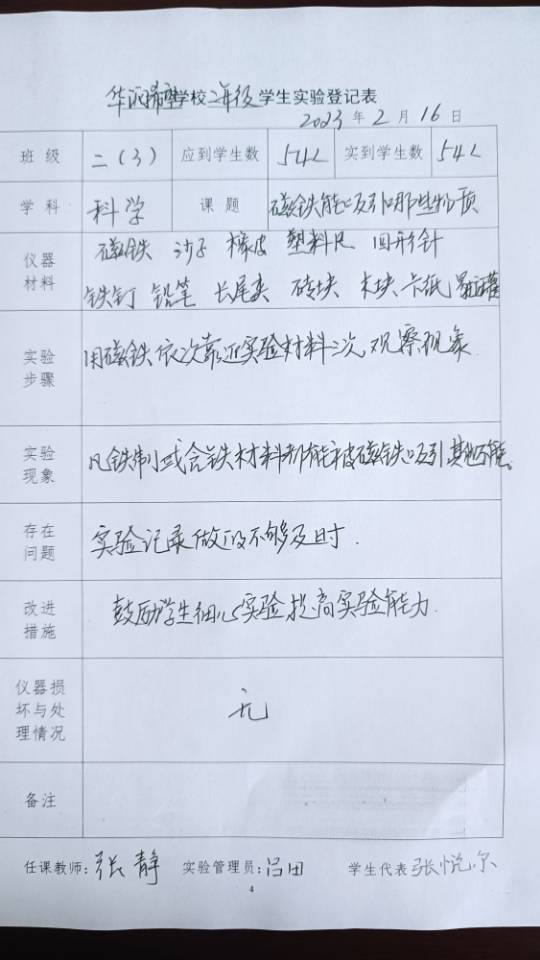 华润希望学校二年级学生实验登记表
2023年2月16日
班级 二(3) 应到学生数 54人 实到学生数 54人
学科 科学 课题 磁铁能吸引哪些物质
仪器材料 磁铁 沙子 橡皮 塑料尺 回形针
铁钉 铅笔 长尾夹 砖块 木块 卡纸
实验步骤 用磁铁依次靠近实验材料二次,观察现象
实验现象 凡铁制或含铁材料都能被磁铁吸引其他不能。
存在问题 实验记录做的不够及时.
改进措施 鼓励学生细心实验提高实验能力.
仪器损坏与处理情况 无
备注
任课教师:张静 实验管理员:吕田 学生代表 张悦尔
4